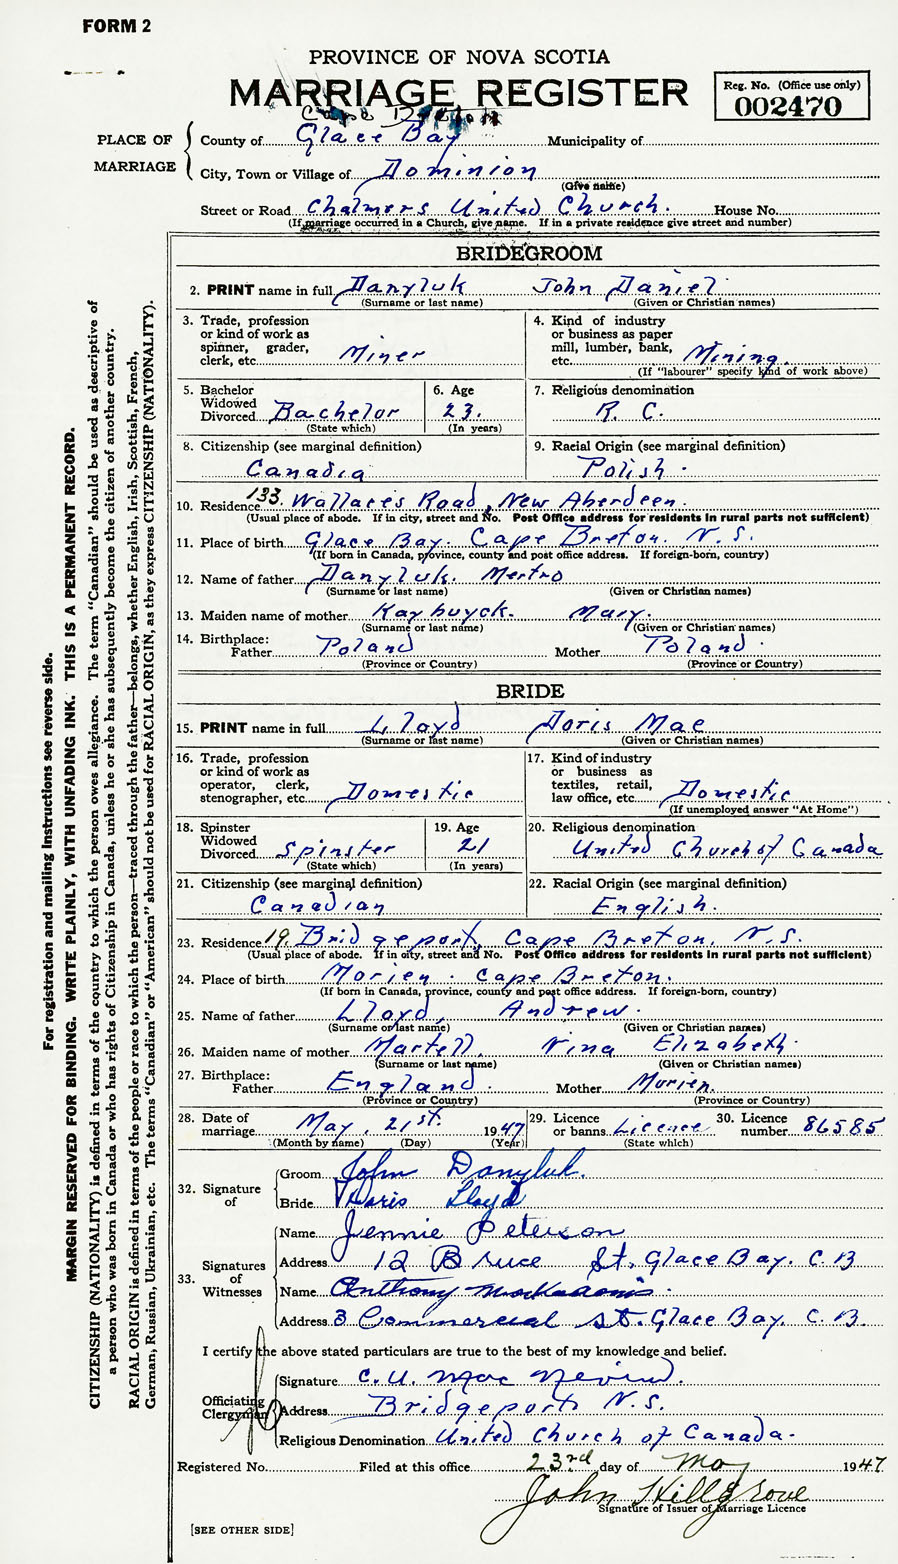 FORM 2
PROVINCE OF NOVA SCOTIA
MARRIAGE REGISTER
Reg. No. (Office use only)
002470
PLACE OF MARRIAGE
Cape Breton
County of Glace Bay Municipality of
City, Town or Village of Dominion
(Give name)
Street or Road Chalmers United Church. House No.
(If marriage occurred in a Church, give name. If in a private residence give street and number)
BRIDEGROOM
2. PRINT name in full Danyluk John Daniel
(Surname or last name) (Given or Christian names)
3. Trade, profession or kind of work as spinner, grader, clerk, etc. Miner
4. Kind of industry or business as paper mill, lumber, bank, etc. Mining.
(If "labourer" specify kind of work above)
5. Bachelor Widowed Divorced Bachelor
(State which)
6. Age 23.
(In years)
7. Religious denomination
R. C.
8. Citizenship (see marginal definition)
Canadia
9. Racial Origin (see marginal definition)
Polish.
10. Residence 133. Wallace's Road, New Aberdeen.
(Usual place of abode. If in city, street and No. Post Office address for residents in rural parts not sufficient)
11. Place of birth Glace Bay. Cape Breton. N. S.
(If born in Canada, province, county and post office address. If foreign-born, country)
12. Name of father Danyluk. Metro
(Surname or last name) (Given or Christian names)
13. Maiden name of mother Mary.
(Surname or last name) (Given or Christian names)
14. Birthplace:
Father Poland Mother Poland.
(Province or Country) (Province or Country)
BRIDE
15. PRINT name in full Lloyd Doris Mae
(Surname or last name) (Given or Christian names)
16. Trade, profession or kind of work as operator, clerk, stenographer, etc. Domestic
17. Kind of industry or business as textiles, retail, law office, etc. Domestic
(If unemployed answer "At Home")
18. Spinster Widowed Divorced Spinster
(State which)
19. Age 21
(In years)
20. Religious denomination
United Church of Canada
21. Citizenship (see marginal definition)
Canadian
22. Racial Origin (see marginal definition)
English.
23. Residence 19. Bridgeport, Cape Breton, N.S.
(Usual place of abode. If in city, street and No. Post Office address for residents in rural parts not sufficient)
24. Place of birth Morien. Cape Breton.
(If born in Canada, province, county and post office address. If foreign-born, country)
25. Name of father Lloyd, Andrew.
(Surname or last name) (Given or Christian names)
26. Maiden name of mother Martell, Nina Elizabeth.
(Surname or last name) (Given or Christian names)
27. Birthplace:
Father England. Mother Morien.
(Province or Country) (Province or Country)
28. Date of marriage May, 21st. 1947
(Month by name) (Day) (Year)
29. Licence or banns Licence
(State which)
30. Licence number 86585
32. Signature of
Groom John Danyluk.
Bride Doris Lloyd
33. Signatures of Witnesses
Name Jennie Peterson
Address 12 Bruce St. Glace Bay. C. B
Name Anthony
Address 3 Commercial St. Glace Bay. C. B.
I certify the above stated particulars are true to the best of my knowledge and belief.
Officiating Clergyman
Signature C. U. Mac Nevin.
Address Bridgeport N. S.
Religious Denomination United Church of Canada.
Registered No. Filed at this office 23rd day of May 1947
John Hillgrove
Signature of Issuer of Marriage Licence
[SEE OTHER SIDE]
For registration and mailing instructions see reverse side.
MARGIN RESERVED FOR BINDING. WRITE PLAINLY, WITH UNFADING INK. THIS IS A PERMANENT RECORD.
CITIZENSHIP (NATIONALITY) is defined in terms of the country to which the person owes allegiance. The term "Canadian" should be used as descriptive of
a person who was born in Canada or who has rights of Citizenship in Canada, unless he or she has subsequently become the citizen of another country.
RACIAL ORIGIN is defined in terms of the people or race to which the person—traced through the father—belongs, whether English, Irish, Scottish, French,
German, Russian, Ukrainian, etc. The terms "Canadian" or "American" should not be used for RACIAL ORIGIN, as they express CITIZENSHIP (NATIONALITY).